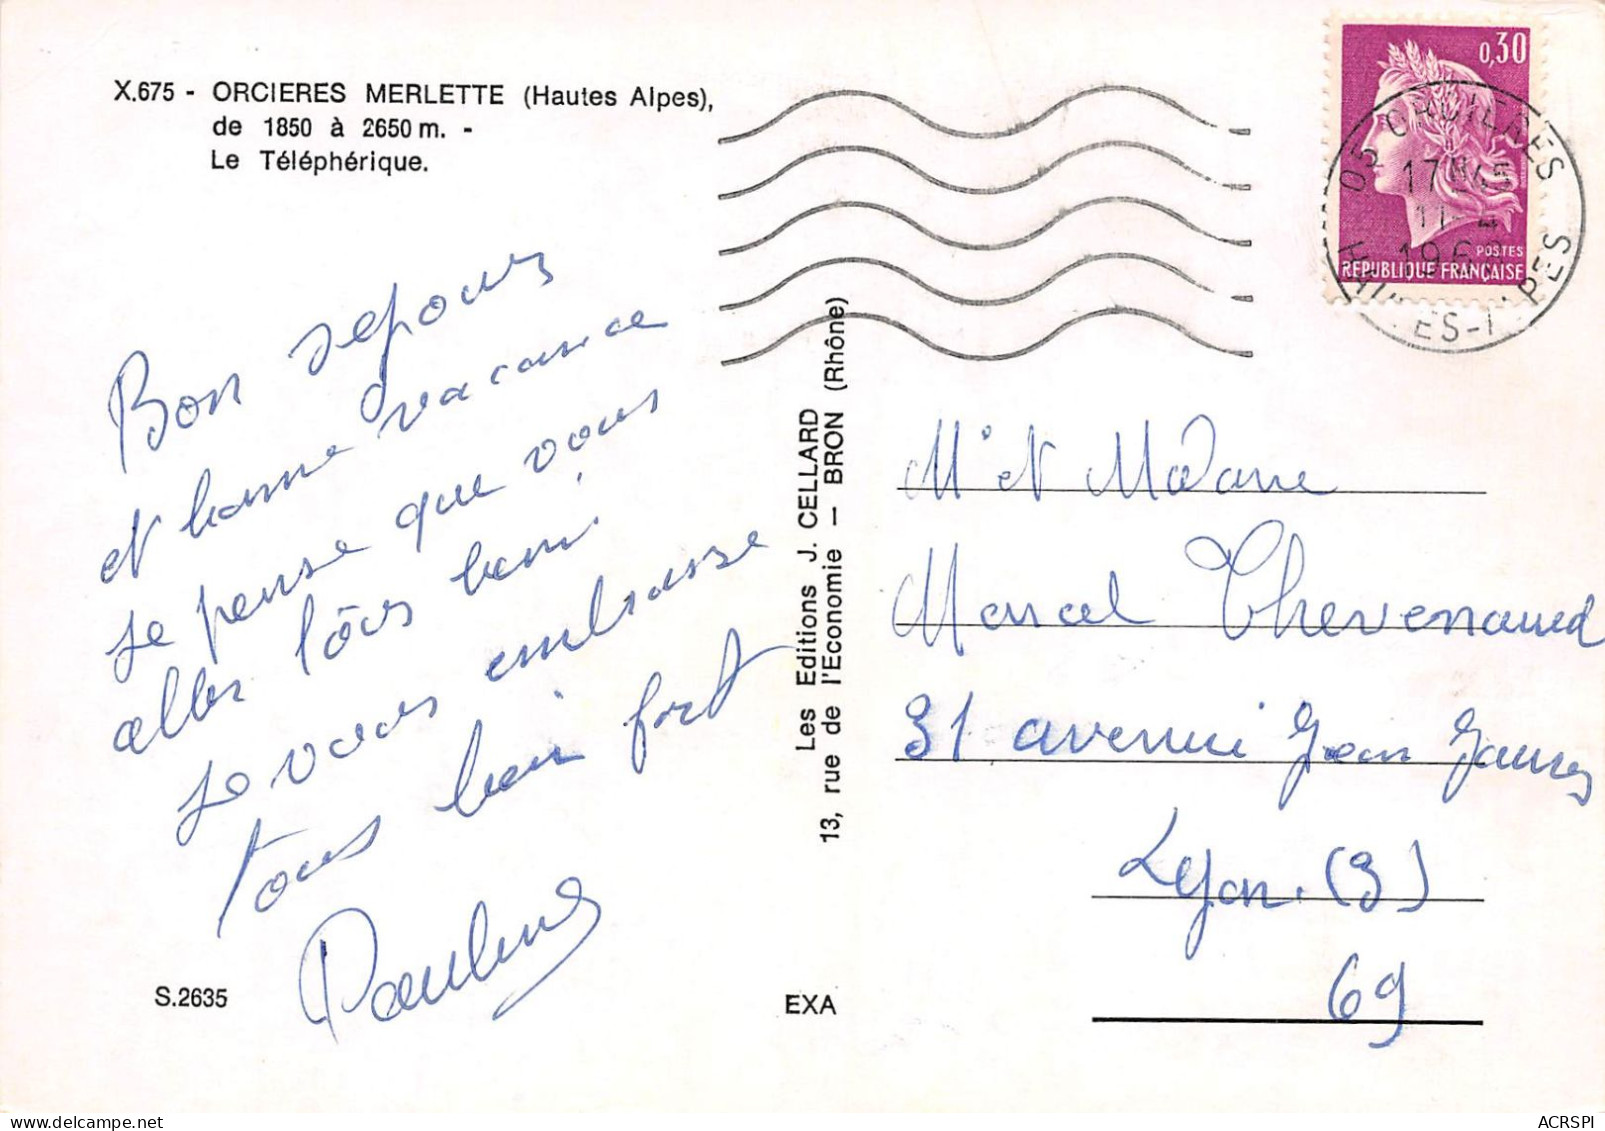 X.675 - ORCIERES MERLETTE (Hautes Alpes),
de 1850 à 2650 m. -
Le Téléphérique.
Bon sejours
et bonne vacance
je pense que vous
aller tôus bein
je vous embrasse
tous bein fort
S.2635
EXA
Les Editions J. CELLARD
13, rue de l'Economie — BRON (Rhône)
0,30
POSTES
REPUBLIQUE FRANÇAISE
05 ORCIERES
17 H 45
11-4
196
Mr et Madame
Marcel Thevenaud
31 avenue Jean Jaures
Lyon. (3)
69
ACRSPI